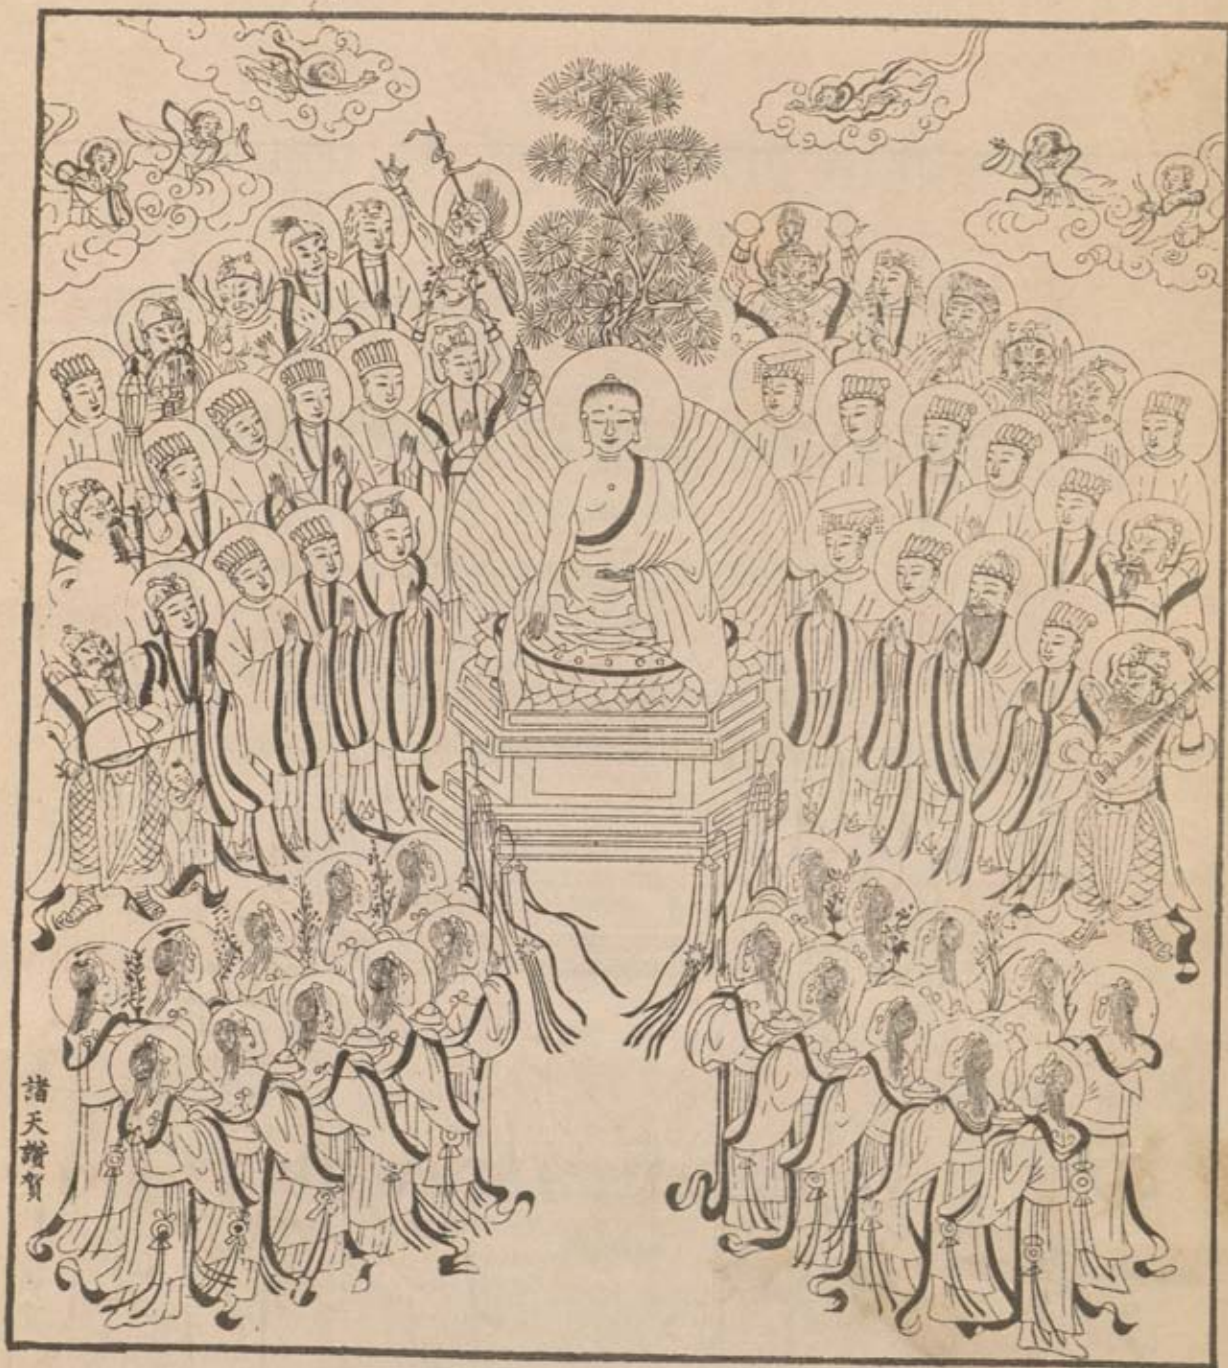 諸天讚賀